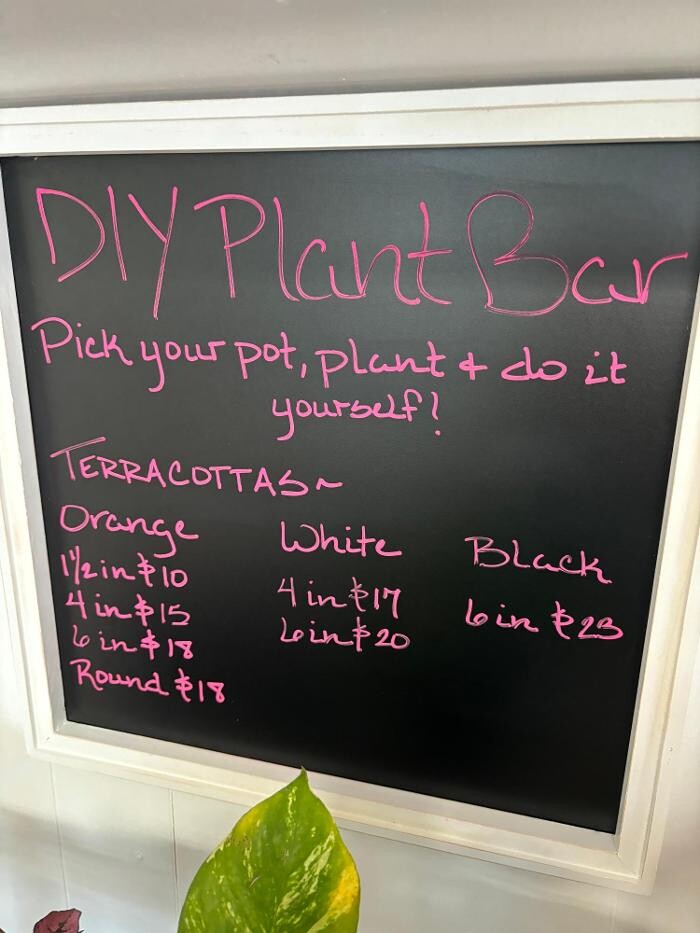 DIY Plant Bar
Pick your pot, plant & do it
yourself!
TERRACOTTAS~
Orange
1 1/2 in $10
4 in $15
6 in $18
Round $18
White
4 in $17
6 in $20
Black
6 in $23